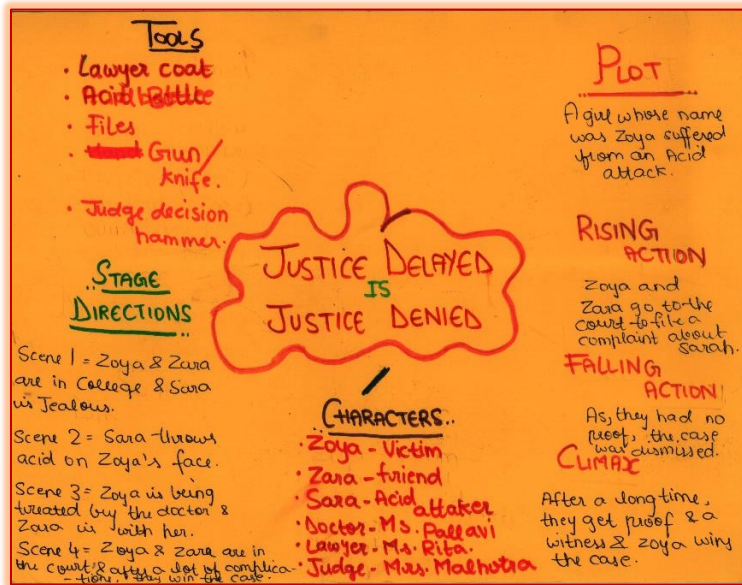 TOOLS
· Lawyer coat
· Acid Bottle
· Files
· Gun/
knife.
· Judge decision
hammer.
STAGE
DIRECTIONS
Scene 1 = Zoya & Zara
are in College & Sara
is Jealous.
Scene 2 = Sara throws
acid on Zoya's face.
Scene 3 = Zoya is being
treated by the doctor &
Zara is with her.
Scene 4 = Zoya & Zara are in
the court & after a lot of complica
-tions, they win the case.
JUSTICE DELAYED
IS
JUSTICE DENIED
CHARACTERS..
· Zoya - Victim
· Zara - friend
· Sara - Acid
attaker
· Doctor - Ms. Pallavi
· Lawyer - Ms. Rita.
· Judge - Mrs. Malhotra
PLOT
A girl whose name
was Zoya suffered
from an Acid
attack.
RISING
ACTION
Zoya and
Zara go to the
court to file a
complaint about
sarah.
FALLING
ACTION
As, they had no
proof, the case
was dismissed.
CLIMAX
After a long time,
they get proof & a
witness & Zoya wins
the case.